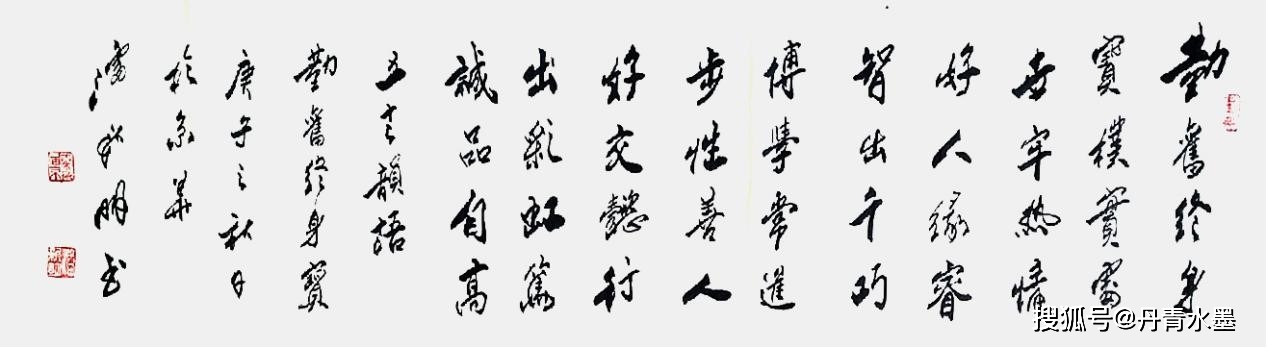 勤奮終身
寶樸實處
世牢熱情
好人緣睿
智出千巧
博學常進
步性善人
好交懿行
出彩虹篤
誠品自高
五言韻語
勤奮終身寶
庚子之秋日
於京華
明书
搜狐号@丹青水墨